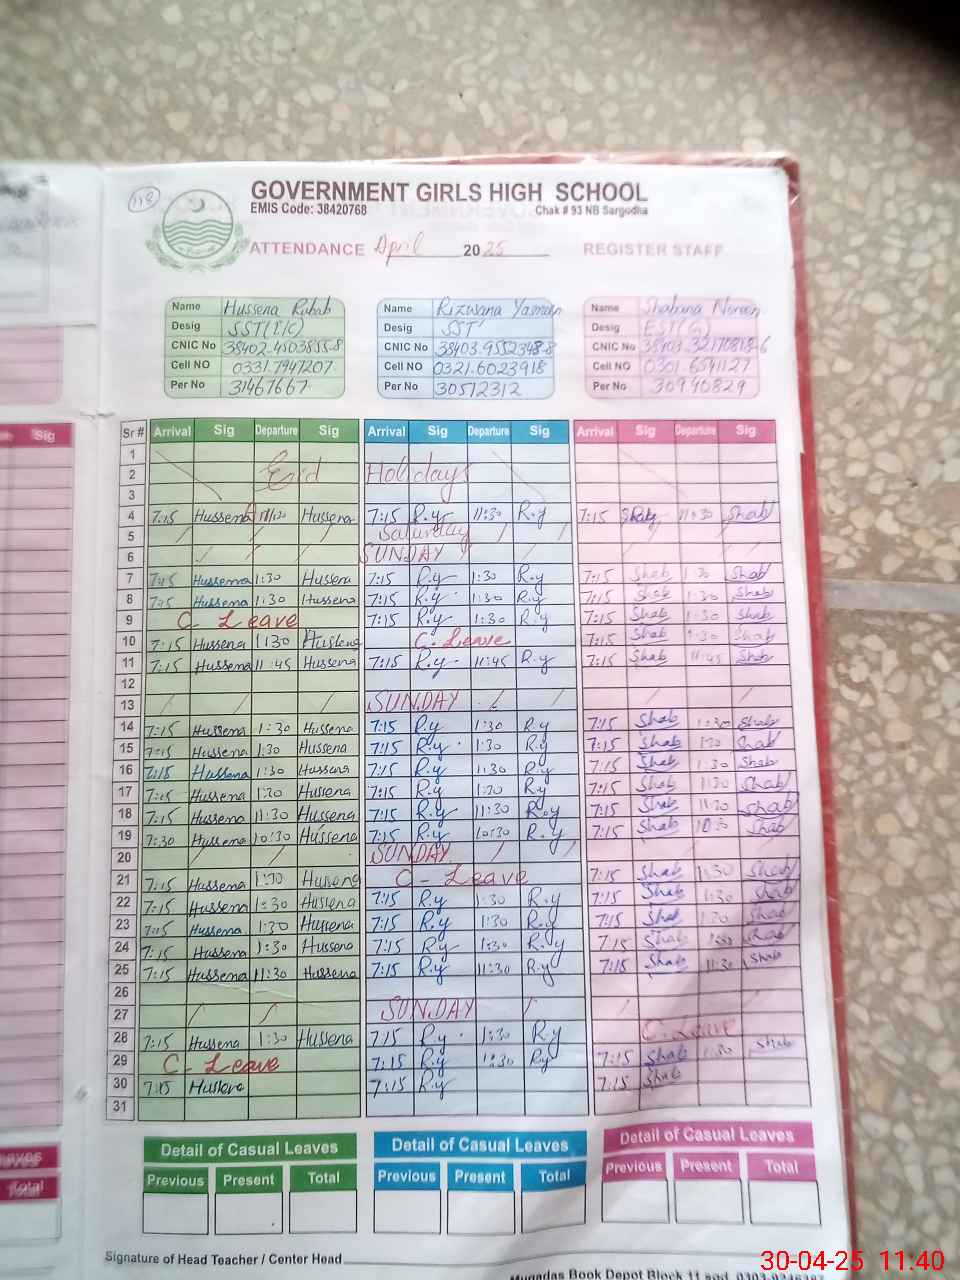 118
GOVERNMENT GIRLS HIGH SCHOOL
EMIS Code: 38420768 Chak # 93 NB Sargodha
ATTENDANCE April 2025 REGISTER STAFF
Name Hussena Rubab Name Rizwana Yasmeen Name Shabana Noreen
Desig SST(I/C) Desig SST Desig EST(G)
CNIC No 38402-4503855-8 CNIC No 38403-9552348-8 CNIC No
Cell NO 0331-7947207 Cell NO 0321-6023918 Cell NO 0301-6591127
Per No 31467667 Per No 30512312 Per No 30990829
Sig
Sr # Arrival Sig Departure Sig Arrival Sig Departure Sig Arrival Sig Departure Sig
1
2 Eid Holidays
3
4 7:15 Hussena 11:30 Hussena 7:15 R.y 11:30 R.y 7:15 Shab 11:30 Shab
5 Saturday
6 SUNDAY
7 7:15 Hussena 1:30 Hussena 7:15 R.y 1:30 R.y 7:15 Shab 1:30 Shab
8 7:15 Hussena 1:30 Hussena 7:15 R.y 1:30 R.y 7:15 Shab 1:30 Shab
9 C Leave 7:15 R.y 1:30 R.y 7:15 Shab 1:30 Shab
10 7:15 Hussena 1:30 Hussena C. Leave 7:15 Shab 1:30 Shab
11 7:15 Hussena 11:45 Hussena 7:15 R.y 11:45 R.y 7:15 Shab 11:45 Shab
12
13 SUNDAY
14 7:15 Hussena 1:30 Hussena 7:15 R.y 1:30 R.y 7:15 Shab 1:30 Shab
15 7:15 Hussena 1:30 Hussena 7:15 R.y 1:30 R.y 7:15 Shab 1:30 Shab
16 7:15 Hussena 1:30 Hussena 7:15 R.y 1:30 R.y 7:15 Shab 1:30 Shab
17 7:15 Hussena 1:30 Hussena 7:15 R.y 1:30 R.y 7:15 Shab 1:30 Shab
18 7:15 Hussena 11:30 Hussena 7:15 R.y 11:30 R.y 7:15 Shab 11:30 Shab
19 7:30 Hussena 10:30 Hussena 7:15 R.y 10:30 R.y 7:15 Shab 10:30 Shab
20 SUNDAY
21 7:15 Hussena 1:30 Hussena C - Leave 7:15 Shab 1:30 Shab
22 7:15 Hussena 1:30 Hussena 7:15 R.y 1:30 R.y 7:15 Shab 1:30 Shab
23 7:15 Hussena 1:30 Hussena 7:15 R.y 1:30 R.y 7:15 Shab 1:30 Shab
24 7:15 Hussena 1:30 Hussena 7:15 R.y 1:30 R.y 7:15 Shab 1:30 Shab
25 7:15 Hussena 11:30 Hussena 7:15 R.y 11:30 R.y 7:15 Shab 11:30 Shab
26
27 SUNDAY
28 7:15 Hussena 1:30 Hussena 7:15 R.y 1:30 R.y C. Leave
29 C - Leave 7:15 R.y 1:30 R.y 7:15 Shab 1:30 Shab
30 7:15 Hussena 7:15 R.y 7:15 Shab
31
Detail of Casual Leaves Detail of Casual Leaves Detail of Casual Leaves
Total Previous Present Total Previous Present Total Previous Present Total
Signature of Head Teacher / Center Head
Muqadas Book Depot Block 11 sgd.
30-04-25 11:40